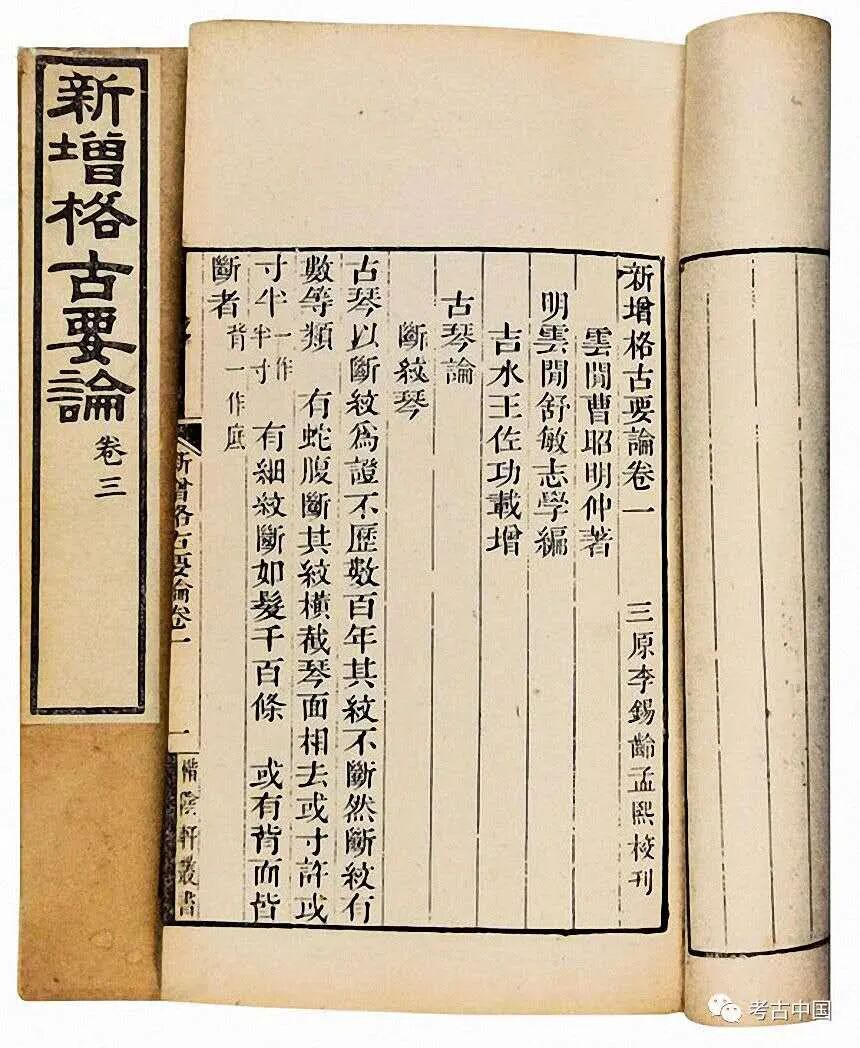 新增格古要論
卷三
新增格古要論卷一
三原李錫齡孟熙校刊
雲閒曹昭明仲著
明雲閒舒敏志學編
吉水王佐功載增
古琴論
斷紋琴
古琴以斷紋爲證不歷數百年其紋不斷然斷紋有
數等類 有蛇腹斷其紋橫截琴面相去或寸許或
寸半一作半寸 有細紋斷如髮千百條 或有背而皆
斷者背一作底
新增格古要論卷一
一
惜陰軒叢書
考古中国